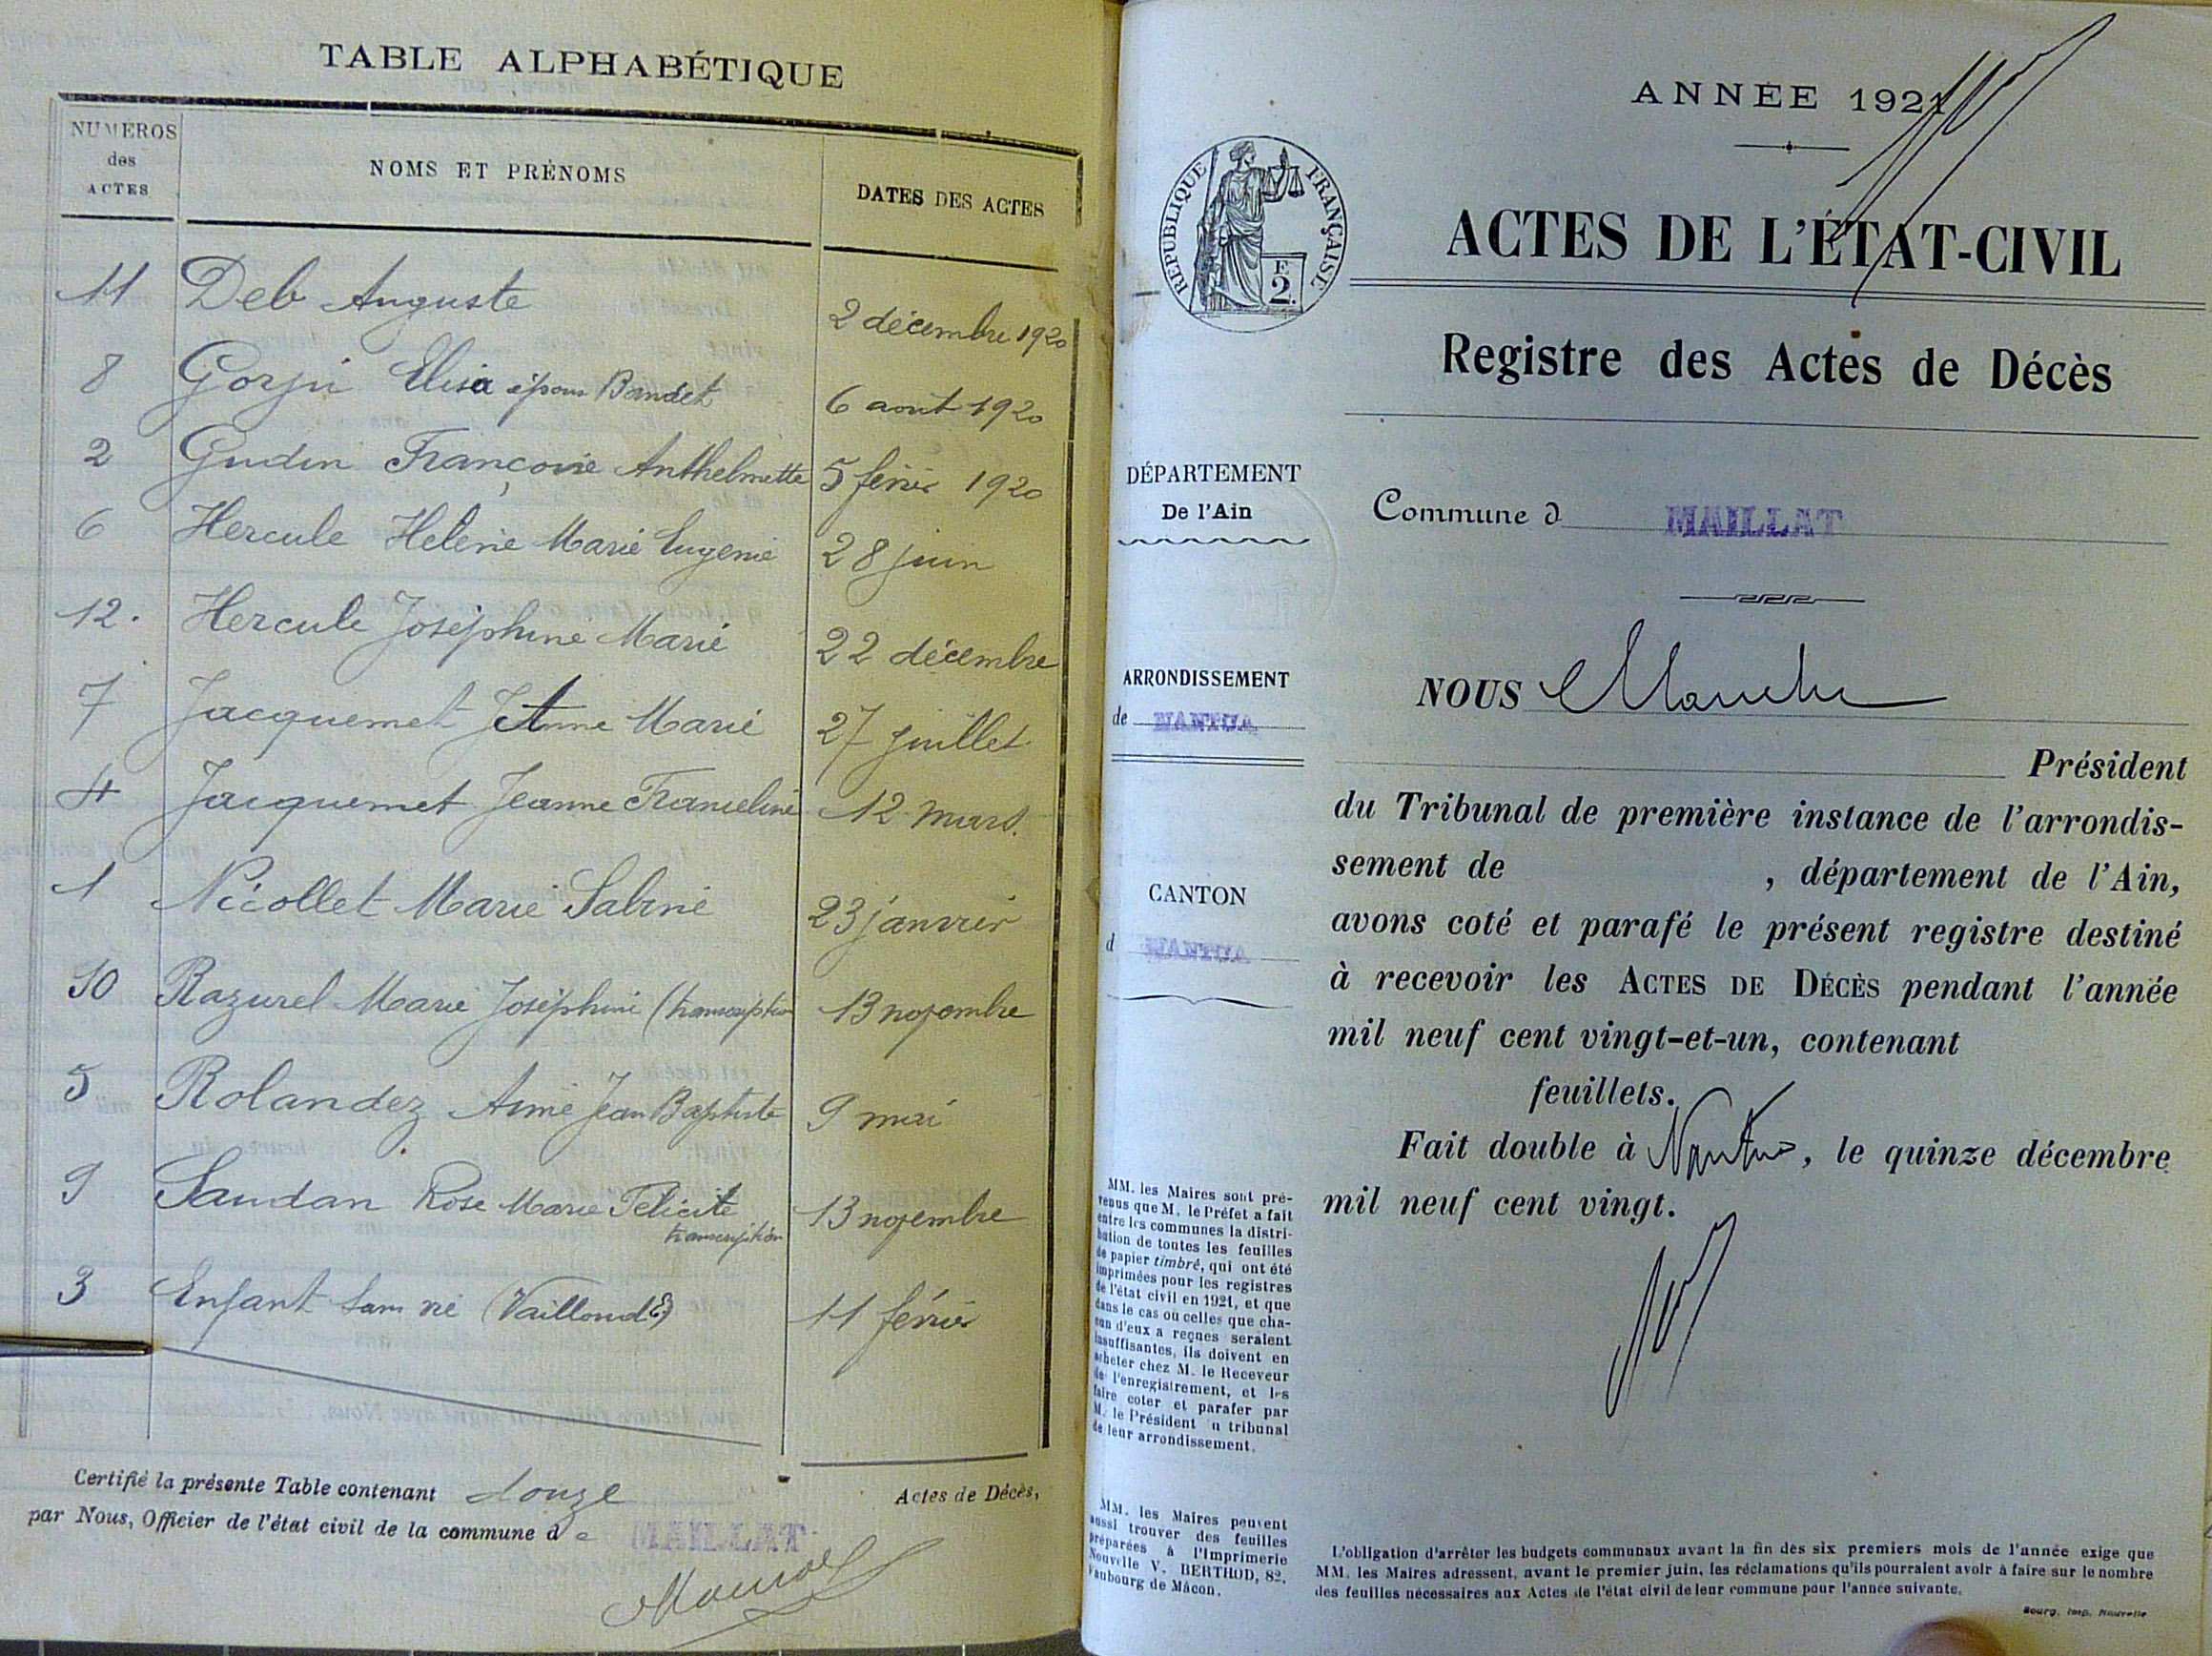 TABLE ALPHABÉTIQUE
NUMÉROS
des
ACTES
NOMS ET PRÉNOMS
DATES DES ACTES
11 Deb Auguste 2 décembre 1920
8 Gorjü Elisa épouse Bandet 6 aout 1920
2 Gudin Françoise Anthelmette 5 février 1920
6 Hercule Helène Marie Eugenie 28 juin
12. Hercule Joséphine Marie 22 décembre
7 Jacquemet Anne Marie 27 juillet
4 Jacquemet Jeanne Franceline 12 mars.
1 Nicollet Marie Sabine 23 janvier
10 Razurel Marie Joséphine (transcription 13 novembre
5 Rolandez Aimé Jean Baptiste 9 mai
9 Saudan Rose Marie Félicité 13 novembre
transcription
3 Enfant sans vie (Vailloud) 11 février
Certifié la présente Table contenant douze Actes de Décès,
par Nous, Officier de l'état civil de la commune de MAILLAT
ANNÉE 1921
RÉPUBLIQUE FRANÇAISE
F.
2.
ACTES DE L'ÉTAT-CIVIL
Registre des Actes de Décès
DÉPARTEMENT
De l'Ain
Commune d MAILLAT
ARRONDISSEMENT
de NANTUA
CANTON
d NANTUA
NOUS
Président
du Tribunal de première instance de l'arrondis-
sement de , département de l'Ain,
avons coté et parafé le présent registre destiné
à recevoir les ACTES DE DÉCÈS pendant l'année
mil neuf cent vingt-et-un, contenant
feuillets.
Fait double à Nantua, le quinze décembre
mil neuf cent vingt.
MM. les Maires sont pré-
venus que M. le Préfet a fait
entre les communes la distri-
bution de toutes les feuilles
de papier timbré, qui ont été
imprimées pour les registres
de l'état civil en 1921, et que
dans le cas où celles que cha-
cun d'eux a reçues seraient
insuffisantes, ils doivent en
acheter chez M. le Receveur
de l'enregistrement, et les
faire coter et parafer par
M. le Président u tribunal
de leur arrondissement.
MM. les Maires peuvent
aussi trouver des feuilles
préparées à l'Imprimerie
Nouvelle V. BERTHOD, 82,
Faubourg de Mâcon.
L'obligation d'arrêter les budgets communaux avant la fin des six premiers mois de l'année exige que
MM. les Maires adressent, avant le premier juin, les réclamations qu'ils pourraient avoir à faire sur le nombre
des feuilles nécessaires aux Actes de l'état civil de leur commune pour l'année suivante.
Bourg, Imp. Nouvelle